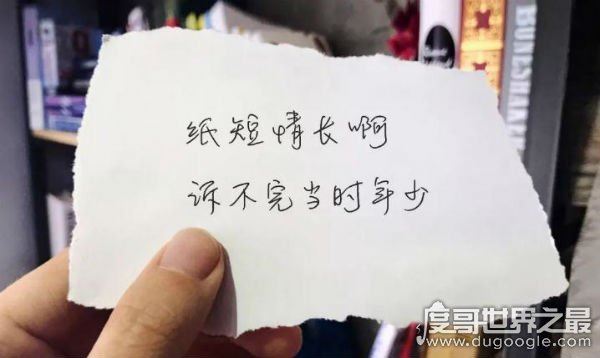 纸短情长啊
诉不完当时年少
度哥世界之最
www.dugoogle.com